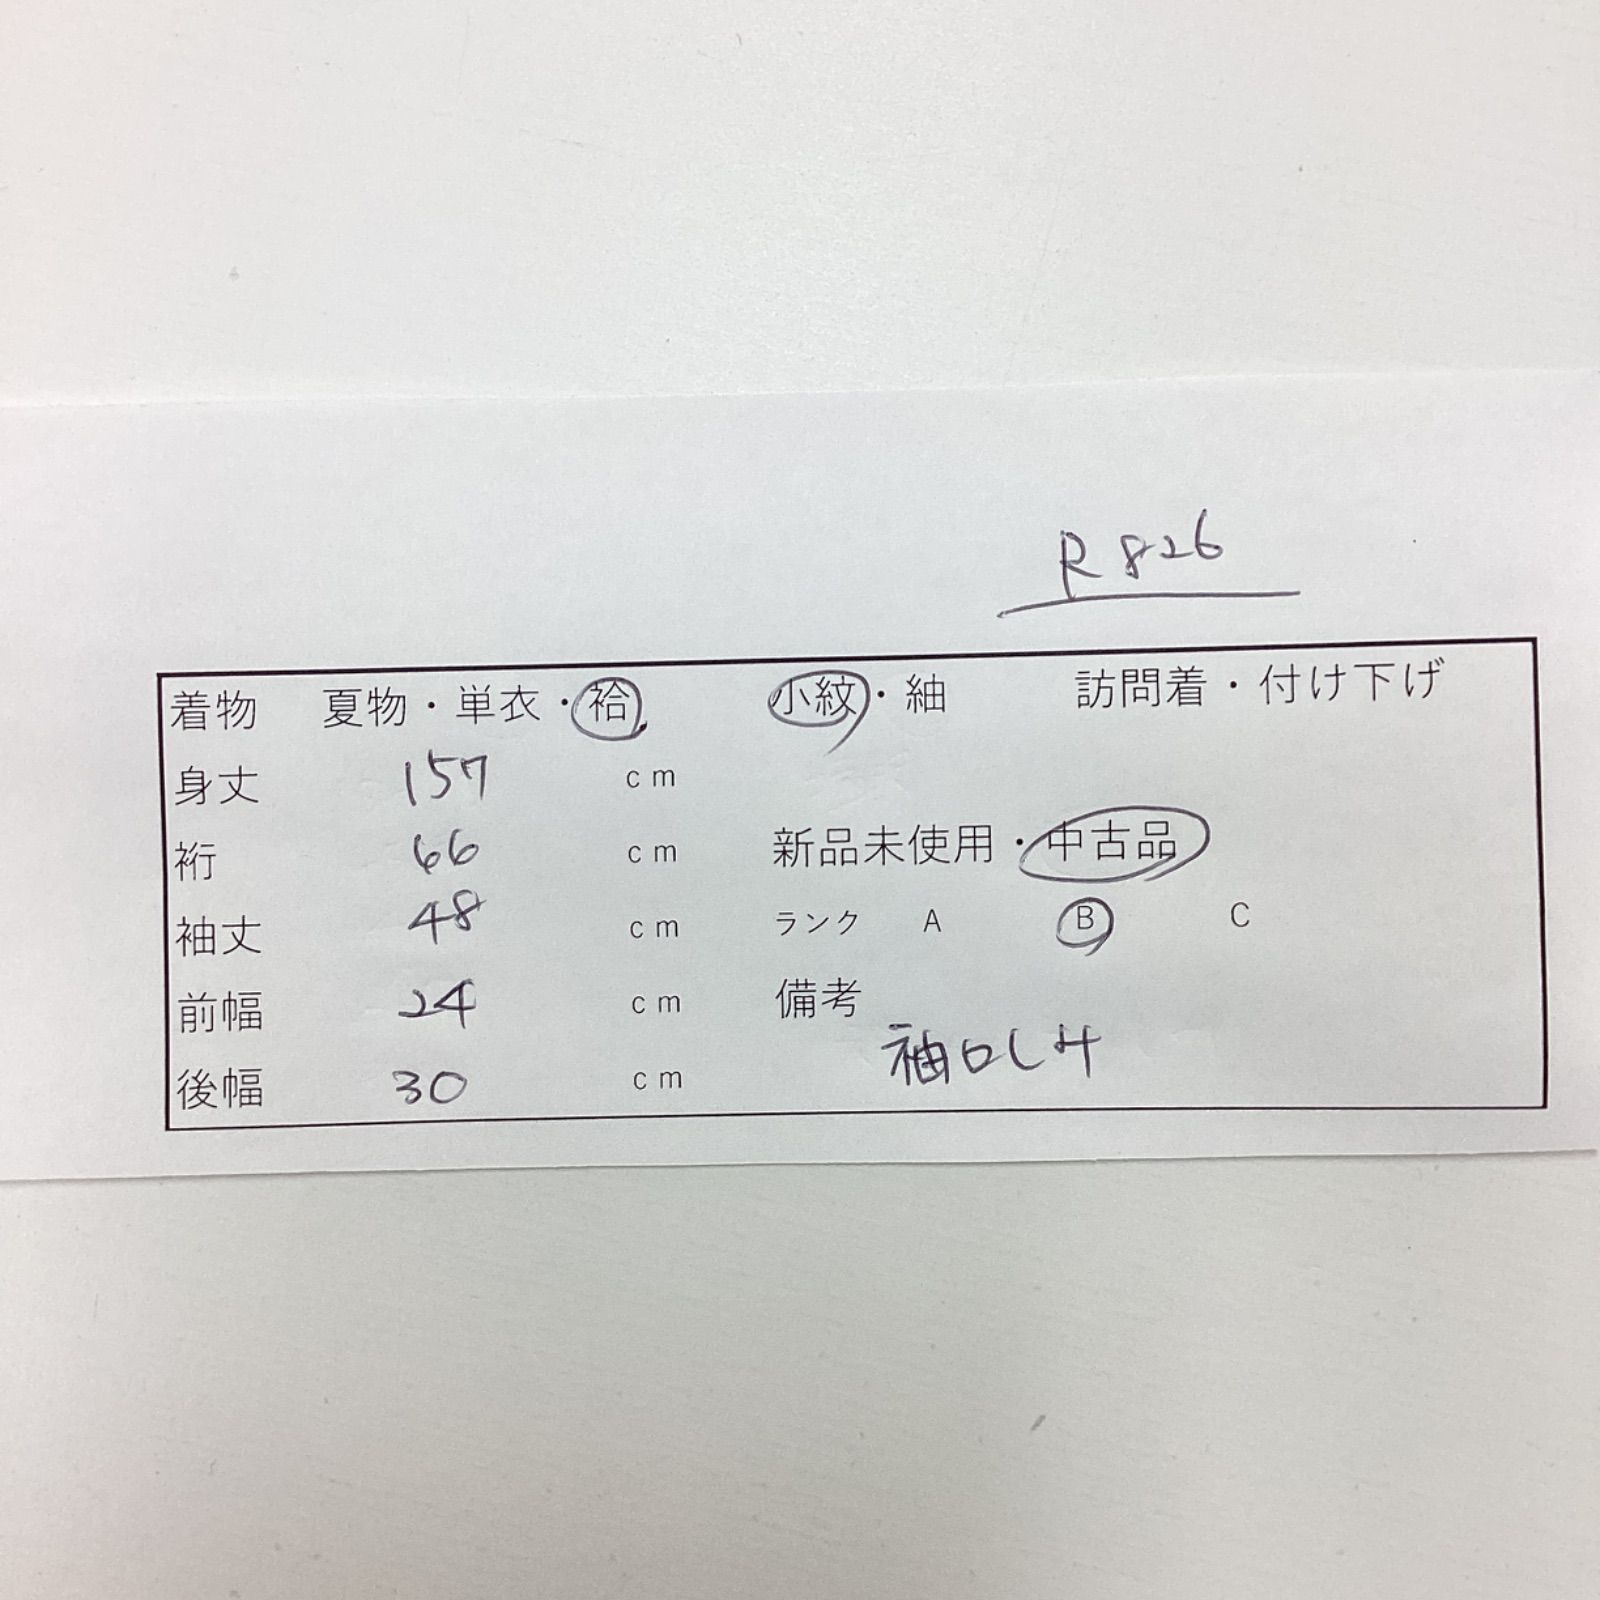 R826
着物 夏物・単衣・袷 小紋・紬 訪問着・付け下げ
身丈 157 cm
裄 66 cm 新品未使用・中古品
袖丈 48 cm ランク A B C
前幅 24 cm 備考
後幅 30 cm 袖口しみ